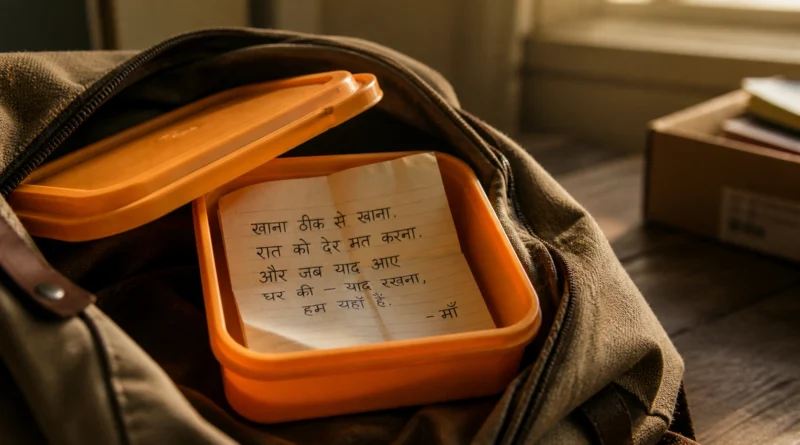 खाना ठीक से खाना.
रात को देर मत करना.
और जब याद आए
घर की – याद रखना,
हम यहाँ हैं.
- माँ